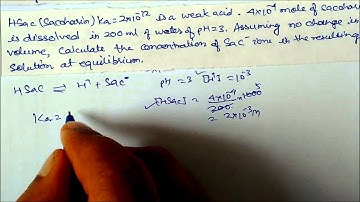 HSac (Saccharin) Ka = 2×10¹² is a weak acid. 4×10⁻⁴ mole of Sacchar
is dissolved in 200 ml of water of pH=3. Assuming no change in
volume, Calculate the concentration of Sac⁻ ions in the resulting
Solution at equilibrium.
HSac ⇌ H⁺ + Sac⁻ pH = 3 [H⁺] = 10⁻³
[HSac] = 4×10⁻⁴/200 × 1000 5
Ka =
= 2×10⁻³ M